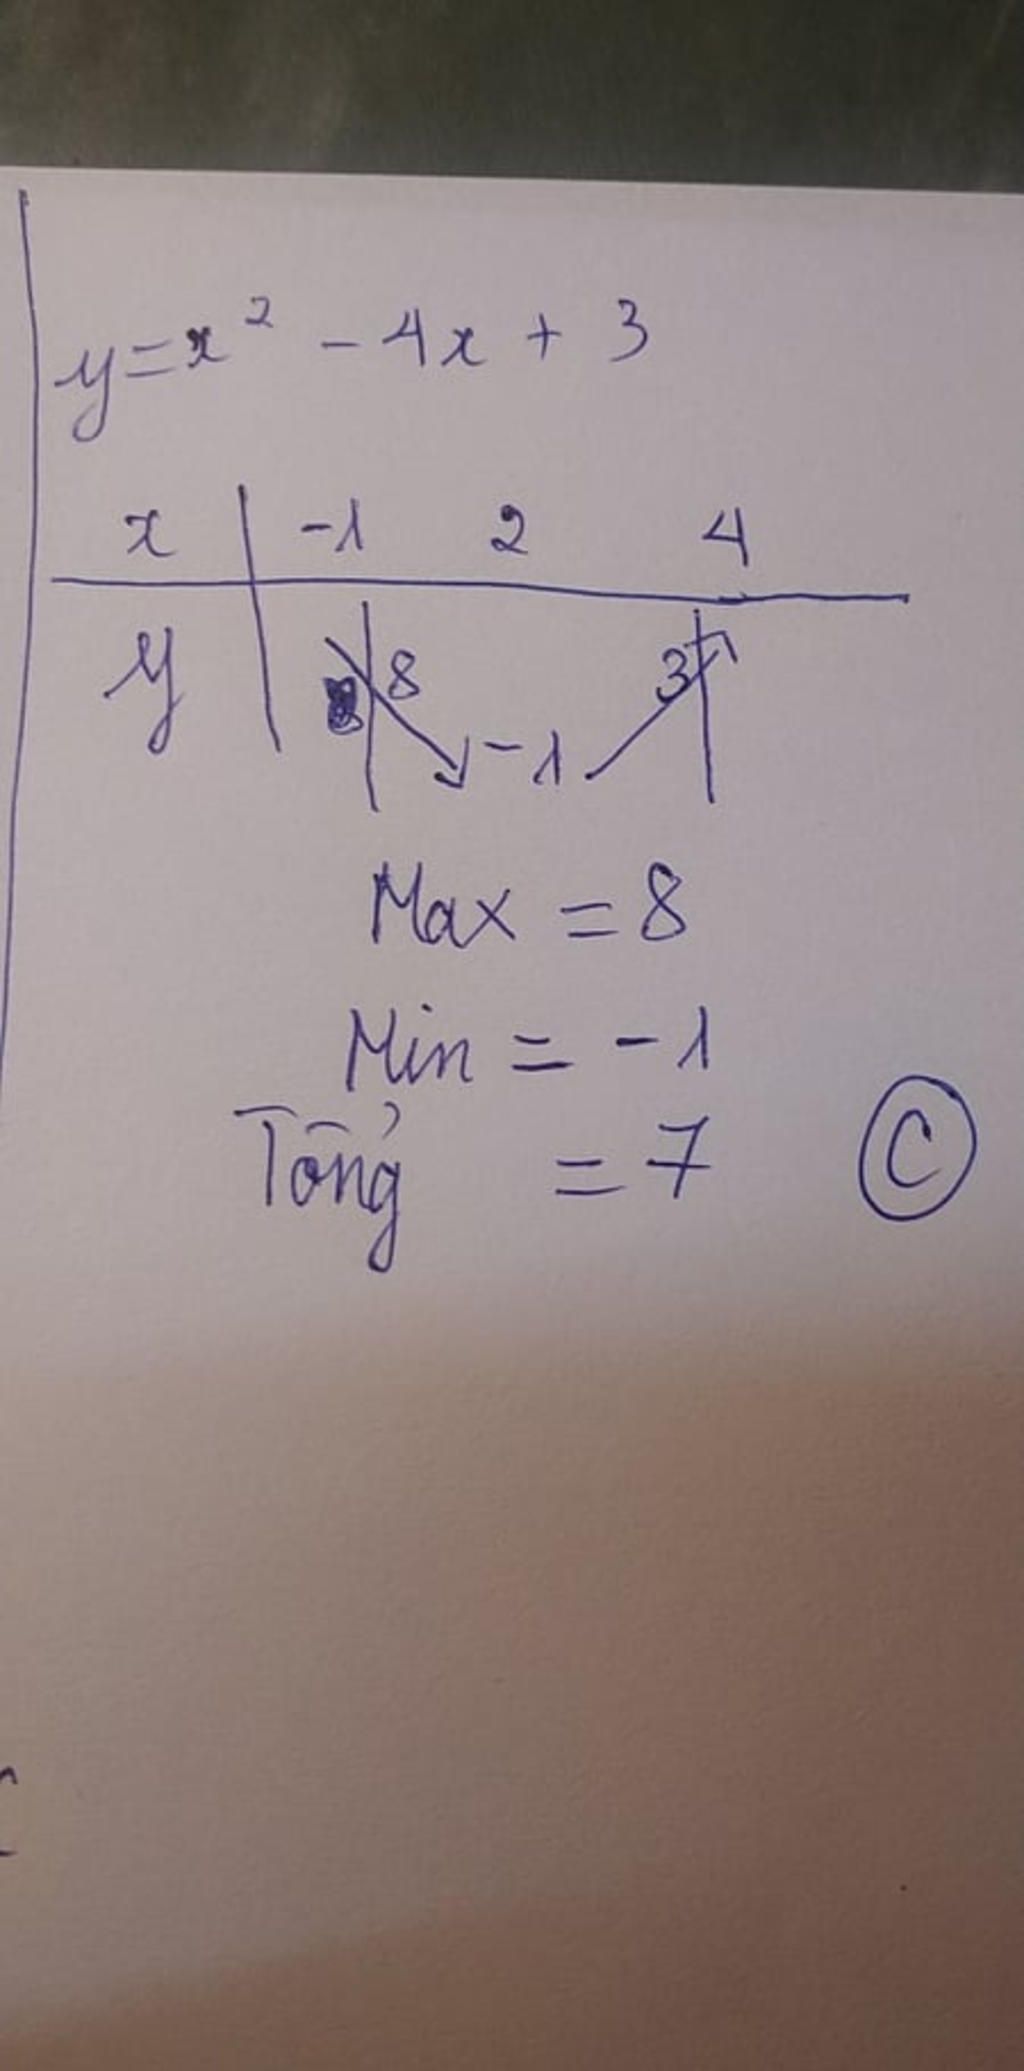 y=x² - 4x + 3
x -1 2 4
y 8 -1 3
Max = 8
Min = -1
Tổng = 7 C